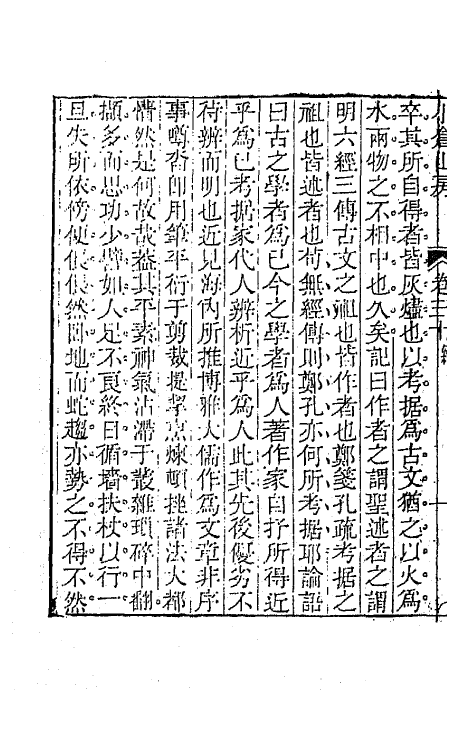 小倉山房 卷三十 續
卒其所自得者皆灰燼也以考据爲古文猶之以火爲
水兩物之不相中也久矣記曰作者之謂聖述者之謂
明六經三傳古文之祖也皆作者也鄭箋孔疏考据之
祖也皆述者也苟無經傳則鄭孔亦何所考据耶論語
曰古之學者爲己今之學者爲人著作家自抒所得近
乎爲己考据家代人辨析近乎爲人此其先後優劣不
待辨而明也近見海內所推博雅大儒作爲文章非序
事噂沓卽用筆平衍于剪裁提挈烹煉頓挫諸法大都
懵然是何故哉葢其平素神氣沾滯于叢雜瑣碎中翻
擷多而思功少譬如人足不良終日循墻扶杖以行一
旦失所依傍便倀倀然臥地而蛇趨亦勢之不得不然